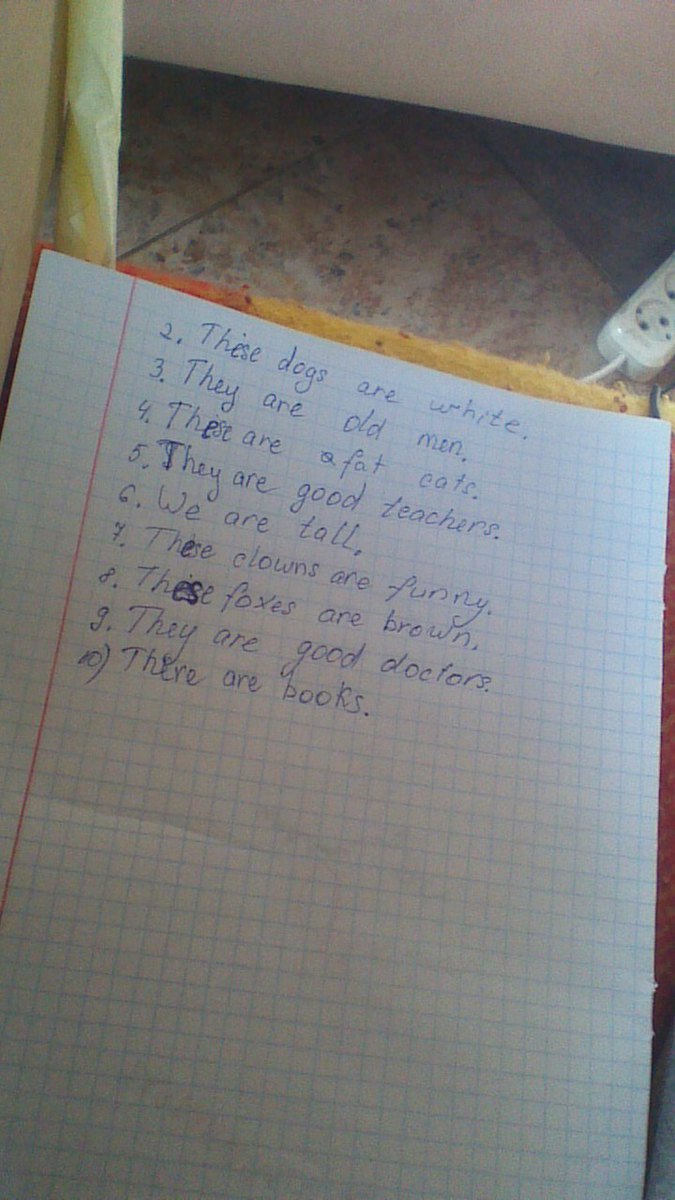 2. These dogs are white.
3. They are old men.
4. These are a fat cats.
5. They are good teachers.
6. We are tall.
7. These clowns are funny.
8. These foxes are brown.
9. They are good doctors.
10) There are books.